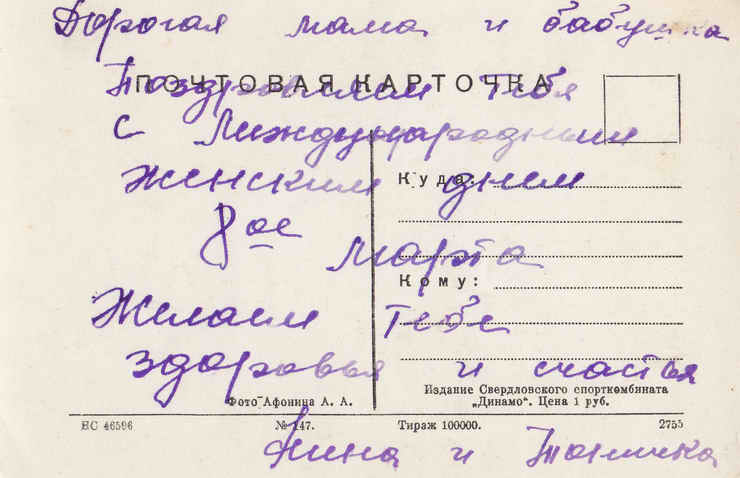 Дорогая мама и бабушка
ПОЧТОВАЯ КАРТОЧКА
Поздравляем тебя
с Международным
Куда:
женским днем
8ое марта
Кому:
Желаем тебе
здоровья и счастья
Издание Свердловского спорткомбината
Фото Афонина А. А.
„Динамо“. Цена 1 руб.
НС 46596 № 147. Тираж 100000. 2755
Нина и Таничка